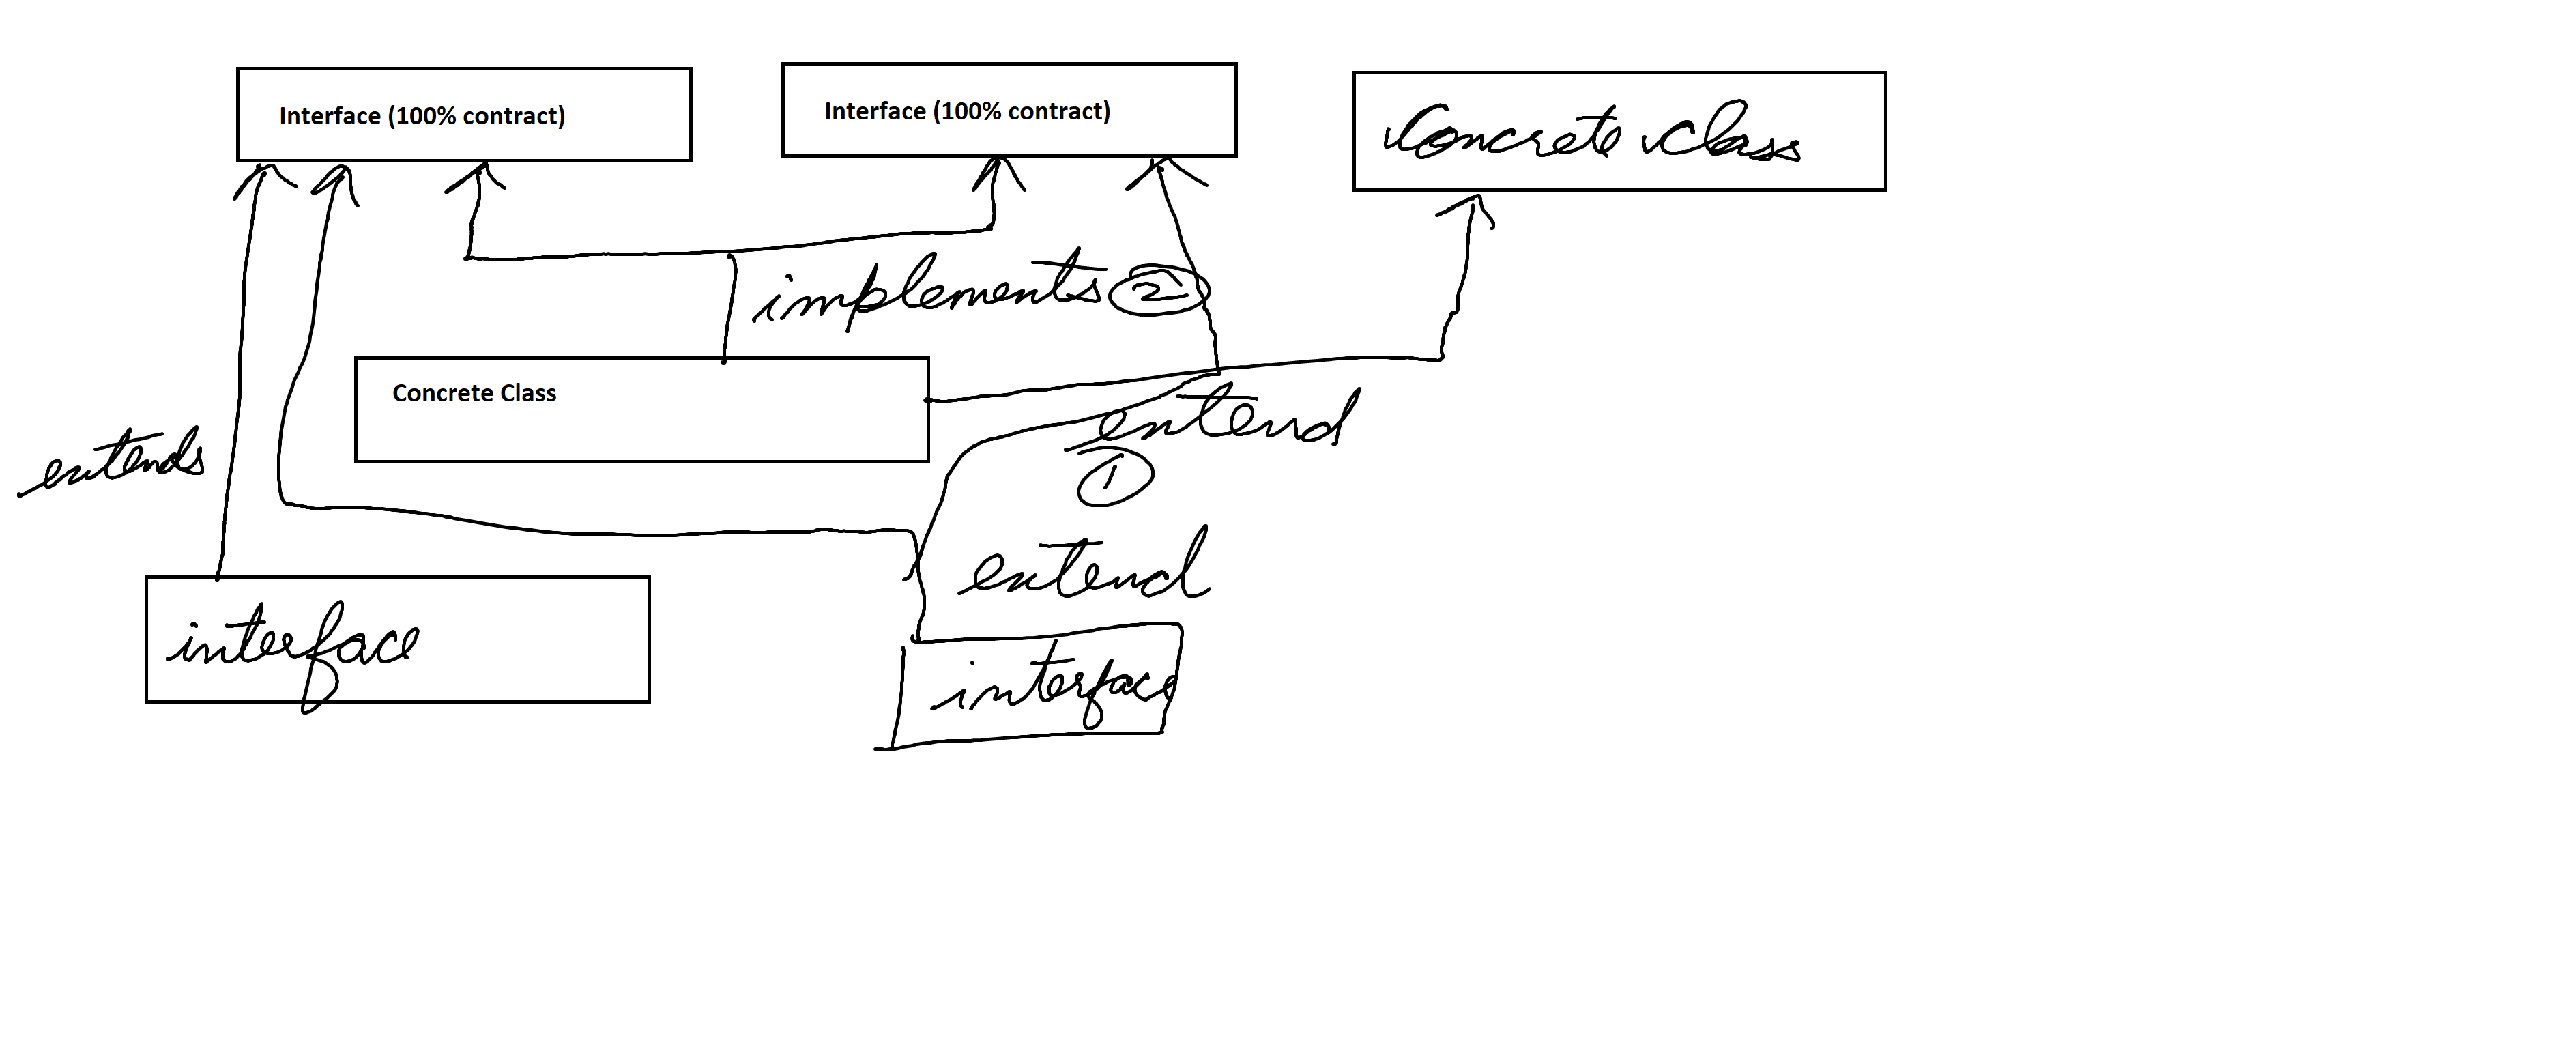 Interface (100% contract)
Interface (100% contract)
Concrete class
implements 2
Concrete Class
extend
1
extends
extend
interface
interface